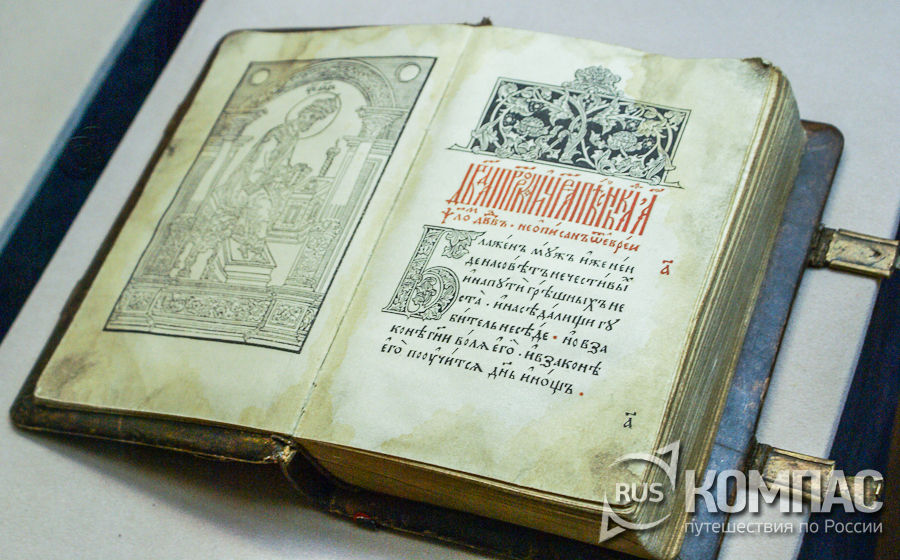 ѱло м дв҃въ · не ѡписанъ ѿ евре́и
а҃
Блаже́нъ мꙋжъ и́же не и́
де на совѣтъ нечестивыⷯ
и҆ на пꙋти грѣ́шныхъ не
ста · и҆ на сѣда́лищи гꙋ
битель не сѣ́де · но в за
ко́нѣ гн҃и во́лѧ е҆го̀ · и҆ в зако́нѣ
е҆го̀ поꙋчи́тсѧ дн҃ь и҆ но́щъ ·
а҃
RUS КОМПАС
путешествия по России